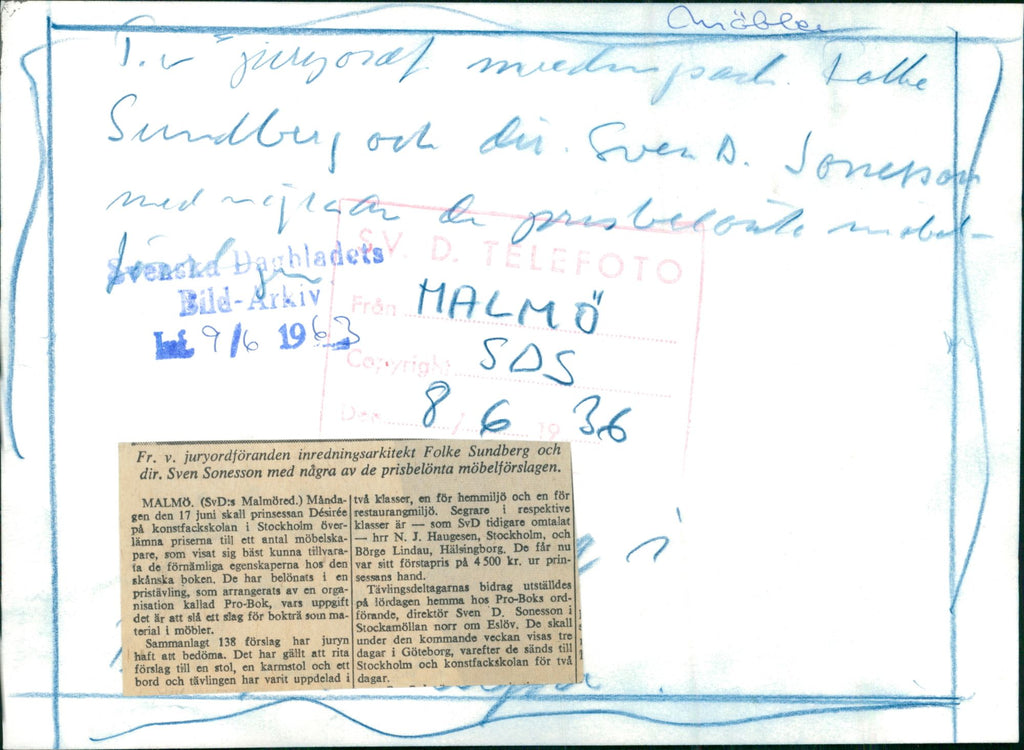 Möbler
T.v juryordf. inredningsark. Folke
Sundberg och dir. Sven D. Sonesson
med några av de prisbelönta möbel-
Svenska Dagbladets
Bild-Arkiv
9/6 1963
SV. D. TELEFOTO
Från MALMÖ
Copyright SDS
Den 8 / 6 19 36
Fr. v. juryordföranden inredningsarkitekt Folke Sundberg och
dir. Sven Sonesson med några av de prisbelönta möbelförslagen.
MALMÖ. (SvD:s Malmöred.) Månda-
gen den 17 juni skall prinsessan Désirée
på konstfackskolan i Stockholm över-
lämna priserna till ett antal möbelska-
pare, som visat sig bäst kunna tillvara-
ta de förnämliga egenskaperna hos den
skånska boken. De har belönats i en
pristävling, som arrangerats av en orga-
nisation kallad Pro-Bok, vars uppgift
det är att slå ett slag för bokträ som ma-
terial i möbler.
Sammanlagt 138 förslag har juryn
haft att bedöma. Det har gällt att rita
förslag till en stol, en karmstol och ett
bord och tävlingen har varit uppdelad i
två klasser, en för hemmiljö och en för
restaurangmiljö. Segrare i respektive
klasser är — som SvD tidigare omtalat
— hrr N. J. Haugesen, Stockholm, och
Börge Lindau, Hälsingborg. De får nu
var sitt förstapris på 4 500 kr. ur prin-
sessans hand.
Tävlingsdeltagarnas bidrag utställdes
på lördagen hemma hos Pro-Boks ord-
förande, direktör Sven D. Sonesson i
Stockamöllan norr om Eslöv. De skall
under den kommande veckan visas tre
dagar i Göteborg, varefter de sänds till
Stockholm och konstfackskolan för två
dagar.